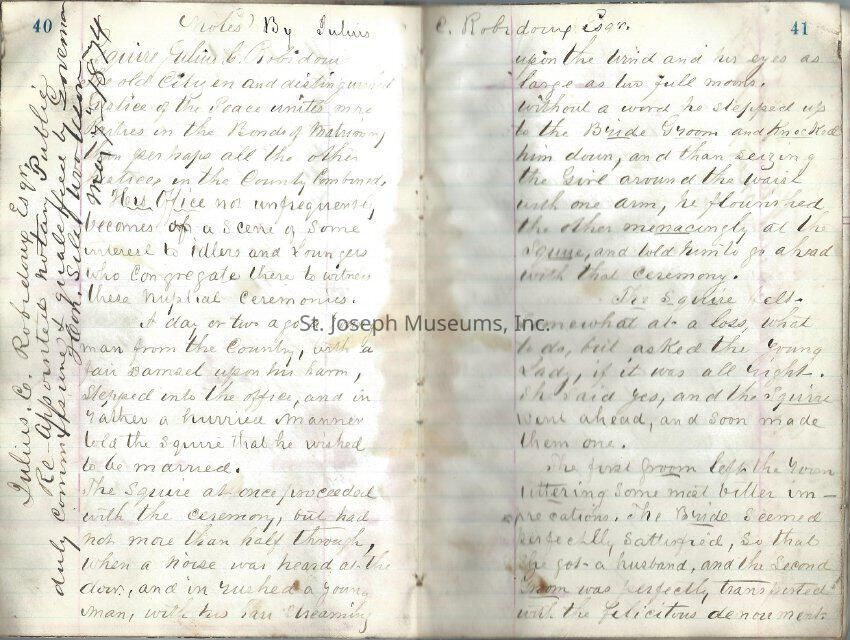 40
Notes By Julius
Squire Julius C. Robidoux
old Citizen and distinguished
Justice of the Peace unites more
in the Bonds of Matrimony
than perhaps all the other
Justices in the County Combined.
His Office not unfrequently
becomes a Scene of Some
interest to Idlers and Loungers
who Congregate there to witness
these nuptial Ceremonies.
A day or two ago a
man from the County, with a
fair Damsel upon his harm,
Stepped into the office, and in
rather a hurried manner
told the Squire that he wished
to be married.
The Squire at once proceeded
with the Ceremony, but had
not more than half through,
when a noise was heard at the
door, and in rushed a young
man, with his hair Streaming
Julius. C. Robidoux Esqr.
Re-Appointed notary Public
duly commissiung & qualified by Governor
Hon. Silas
May 1874
St. Joseph Museums, Inc.
41
C. Robidoux Esqr.
upon the wind and his eyes as
large as two full moons.
Without a word he stepped up
to the Bride Groom and Knocked
him down, and than seizing
the Girl around the waist
with one arm, he flourished
the other menacingly at the
Squire, and told him to go ahead
with that Ceremony.
The Squire felt
somewhat at a loss, what
to do, but asked the Young
Lady, if it was all right.
She said yes, and the Squire
went ahead, and soon made
them one.
The first Groom left the room
uttering some most bitter im-
recations. The Bride Seemed
perfectly Sattisfied, So that
She got a husband, and the Second
Groom was perfectly transported
with the felicitous denouments